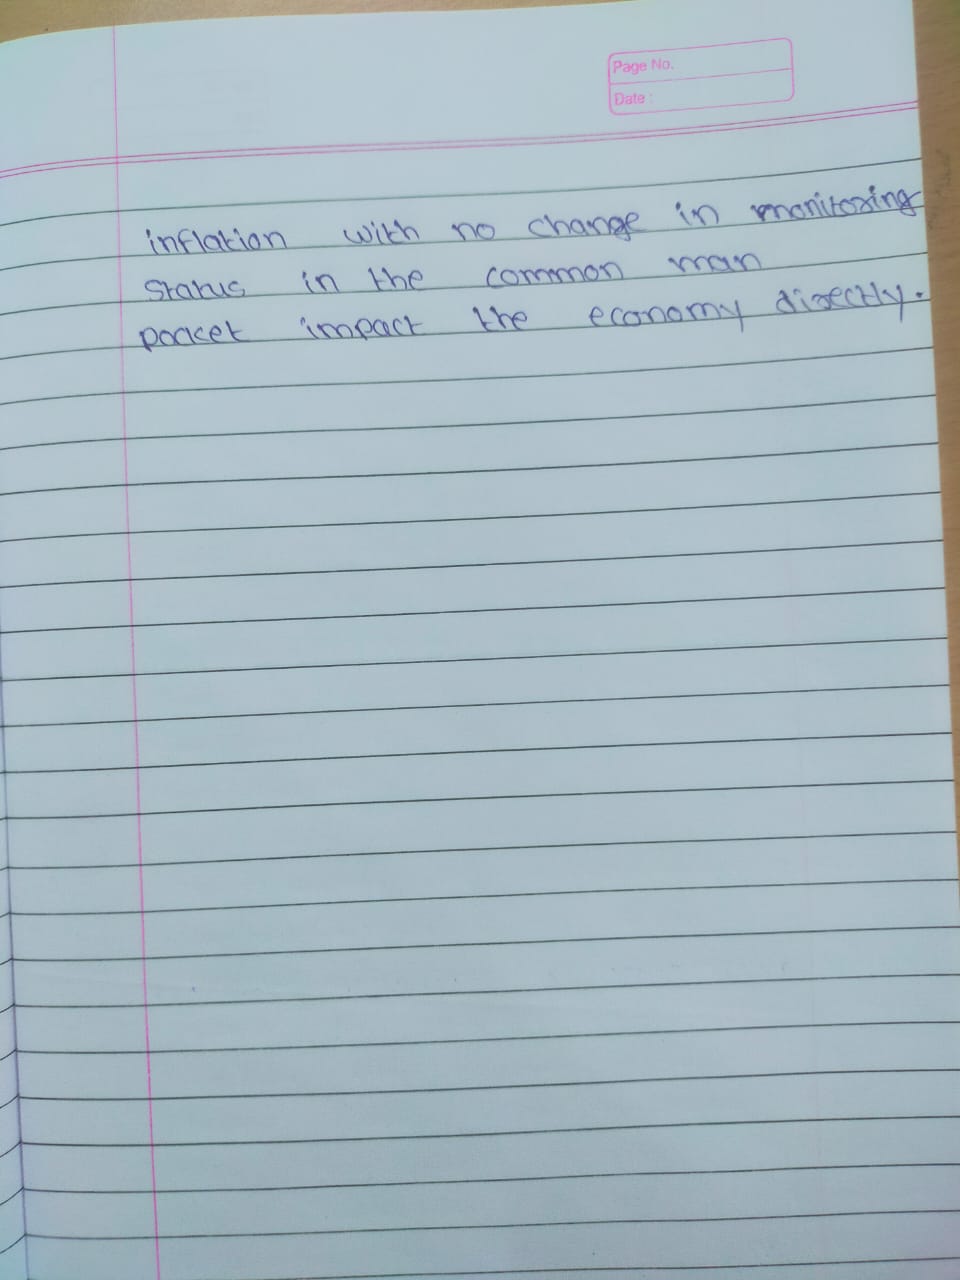 Page No.
Date :
inflation with no change in monitoring
status in the common man
pocket impact the economy directly.